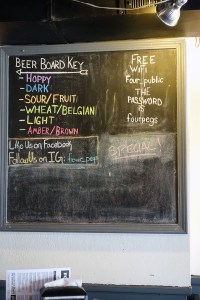 BEER BOARD KEY
- HOPPY
- DARK
- SOUR/FRUIT
- WHEAT/BELGIAN
- LIGHT
- AMBER/BROWN
Like Us on Facebook
Follow Us on IG:
FREE
WiFi
Four_public
THE
PASSWORD
IS
fourpegs
SPECIAL